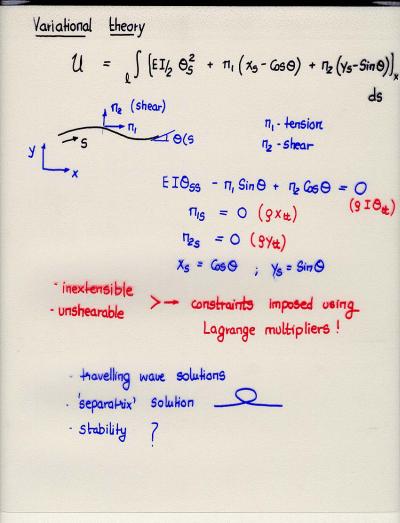 Variational theory
U = ∫ₗ [EI/2 θs² + n₁ (xs - Cosθ) + n₂ (ys - Sinθ)] x ds
n₂ (shear)
n₁
s
θ(s
y
x
n₁ - tension
n₂ - shear
EIθss - n₁ Sinθ + n₂ Cosθ = 0
(ρIθtt)
n₁s = 0 (ρxtt)
n₂s = 0 (ρytt)
xs = Cosθ ; ys = Sinθ
- inextensible
- unshearable
> → constraints imposed using
Lagrange multipliers !
- travelling wave solutions
· 'separatrix' solution
· stability ?